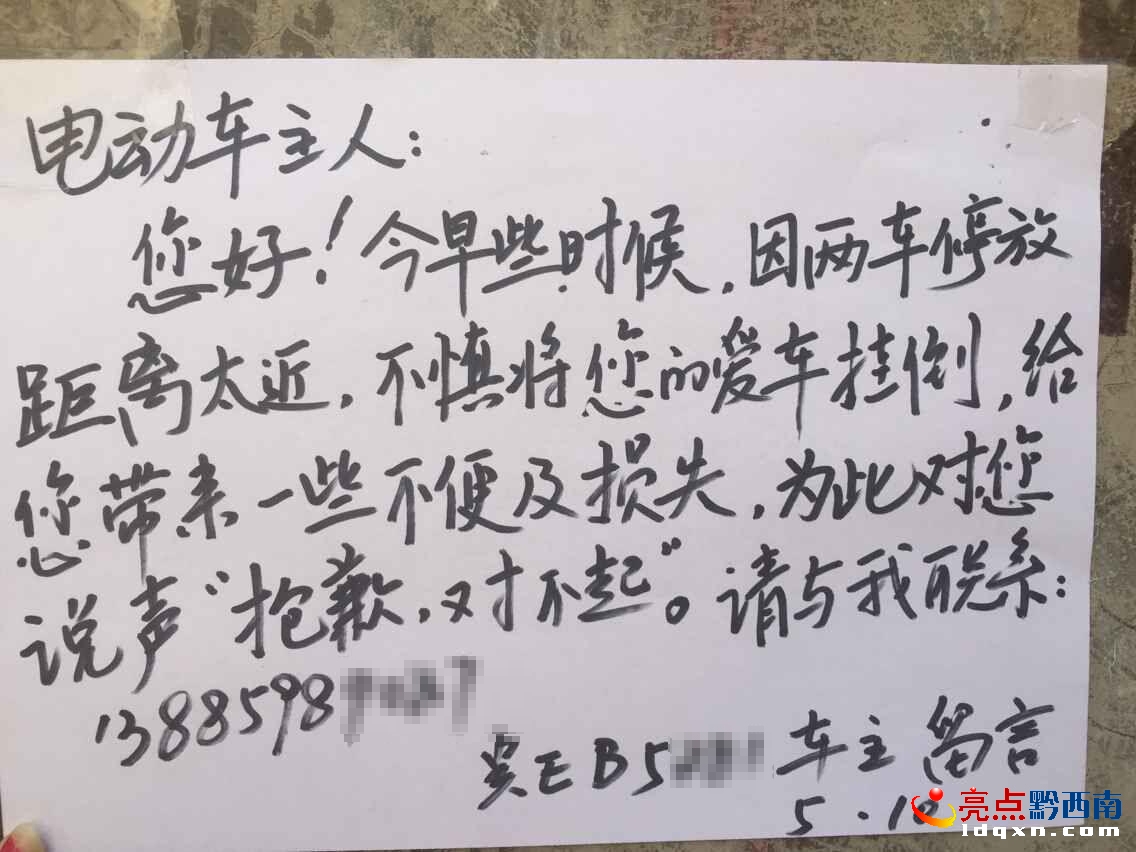 电动车主人：
您好！今早些时候，因两车停放
距离太近，不慎将您的爱车挂倒，给
您带来一些不便及损失，为此对您
说声“抱歉，对不起”。请与我联系：
1388598
贵EB5 车主留言
5.10
亮点黔西南
ldqxn.com